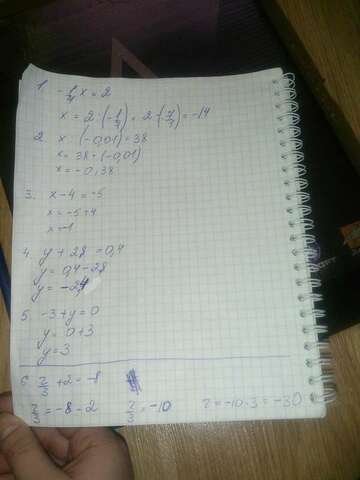 1 -1/7 x = 2
x = 2 : (-1/7) = 2 · (-7/1) = -14
2. x : (-0,01) = 38
x = 38 · (-0,01)
x = -0,38
3. x - 4 = -5
x = -5 + 4
x = -1
4. y + 2,8 = 0,4
y = 0,4 - 2,8
y = -2,4
5. -3 + y = 0
y = 0 + 3
y = 3
6. z/3 + 2 = -8
z/3 = -8 - 2 z/3 = -10 z = -10 · 3 = -30